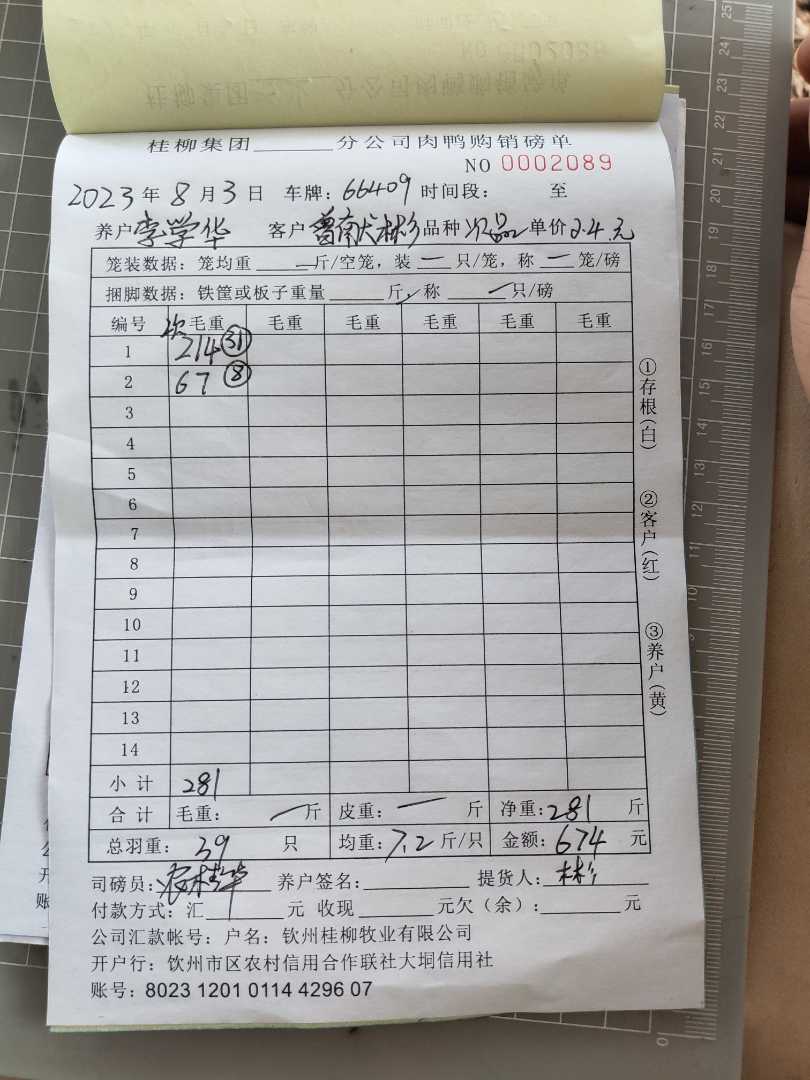 桂柳集团______分公司肉鸭购销磅单
NO 0002089
2023年8月3日 车牌：66409 时间段： 至
养户 李学华 客户 曾献彬 品种 次品 单价 2.4元
笼装数据：笼均重____斤/空笼，装 一 只/笼，称 一 笼/磅
捆脚数据：铁筐或板子重量____斤，称____只/磅
编号 次毛重 毛重 毛重 毛重 毛重 毛重
1 214 ㉛
2 67 ⑧
3
4
5
6
7
8
9
10
11
12
13
14
小计 281
合计 毛重： 一 斤 皮重： 一 斤 净重：281 斤
总羽重：39 只 均重：7.2 斤/只 金额：674 元
司磅员：农桂华 养户签名：______ 提货人：彬
付款方式：汇______元 收现______元欠（余）：______元
公司汇款帐号：户名：钦州桂柳牧业有限公司
开户行：钦州市区农村信用合作联社大垌信用社
账号：8023 1201 0114 4296 07
①存根(白)
②客户(红)
③养户(黄)